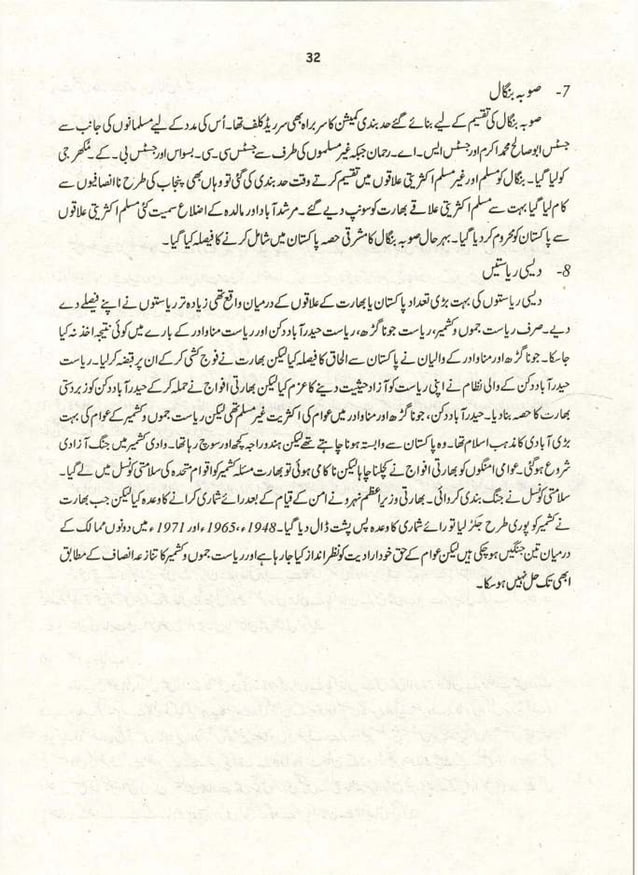 32
7- صوبہ بنگال
صوبہ بنگال کی تقسیم کے لیے بنائے گئے حد بندی کمیشن کا سربراہ بھی سر ریڈ کلف تھا۔ اُس کی مدد کے لیے مسلمانوں کی جانب سے
جسٹس ابو صالح محمد اکرم اور جسٹس ایس۔ اے۔ رحمان جبکہ غیر مسلموں کی طرف سے جسٹس سی۔ سی۔ بسواس اور جسٹس بی۔ کے۔ مکھر جی
کو لیا گیا۔ بنگال کو مسلم اور غیر مسلم اکثریتی علاقوں میں تقسیم کرتے وقت حد بندی کی گئی تو وہاں بھی پنجاب کی طرح نا انصافیوں سے
کام لیا گیا بہت سے مسلم اکثریتی علاقے بھارت کو سونپ دیے گئے۔ مرشد آباد اور مالدہ کے اضلاع سمیت کئی مسلم اکثریتی علاقوں
سے پاکستان کو محروم کر دیا گیا۔ بہر حال صوبہ بنگال کا مشرقی حصہ پاکستان میں شامل کرنے کا فیصلہ کیا گیا۔
8- دیسی ریاستیں
دیسی ریاستوں کی بہت بڑی تعداد پاکستان یا بھارت کے علاقوں کے درمیان واقع تھی زیادہ تر ریاستوں نے اپنے فیصلے دے
دیے۔ صرف ریاست جموں و کشمیر، ریاست جونا گڑھ، ریاست حیدر آباد دکن اور ریاست مناوادر کے بارے میں کوئی نتیجہ اخذ نہ کیا
جاسکا۔ جونا گڑھ اور مناوادر کے والیان نے پاکستان سے الحاق کا فیصلہ کیا لیکن بھارت نے فوج کشی کر کے ان پر قبضہ کر لیا۔ ریاست
حیدر آباد دکن کے والی نظام نے اپنی ریاست کو آزاد حیثیت دینے کا عزم کیا لیکن بھارتی افواج نے حملہ کر کے حیدر آباد دکن کو زبردستی
بھارت کا حصہ بنا دیا۔ حیدر آباد دکن، جونا گڑھ اور مناوادر میں عوام کی اکثریت غیر مسلم تھی لیکن ریاست جموں و کشمیر کے عوام کی بہت
بڑی آبادی کا مذہب اسلام تھا۔ وہ پاکستان سے وابستہ ہونا چاہتے تھے لیکن ہندو راجہ کچھ اور سوچ رہا تھا۔ وادی کشمیر میں جنگ آزادی
شروع ہو گئی۔ عوامی امنگوں کو بھارتی افواج نے کچلنا چاہا لیکن ناکامی ہوئی تو بھارت مسئلہ کشمیر کو اقوام متحدہ کی سلامتی کونسل میں لے گیا۔
سلامتی کونسل نے جنگ بندی کروائی۔ بھارتی وزیراعظم نہرو نے امن کے قیام کے بعد رائے شماری کرانے کا وعدہ کیا لیکن جب بھارت
نے کشمیر کو پوری طرح جکڑ لیا تو رائے شماری کا وعدہ پس پشت ڈال دیا گیا۔ 1948ء، 1965ء اور 1971ء میں دونوں ممالک کے
درمیان تین جنگیں ہو چکی ہیں لیکن عوام کے حق خود ارادیت کو نظر انداز کیا جا رہا ہے اور ریاست جموں و کشمیر کا تنازعہ انصاف کے مطابق
ابھی تک حل نہیں ہو سکا۔